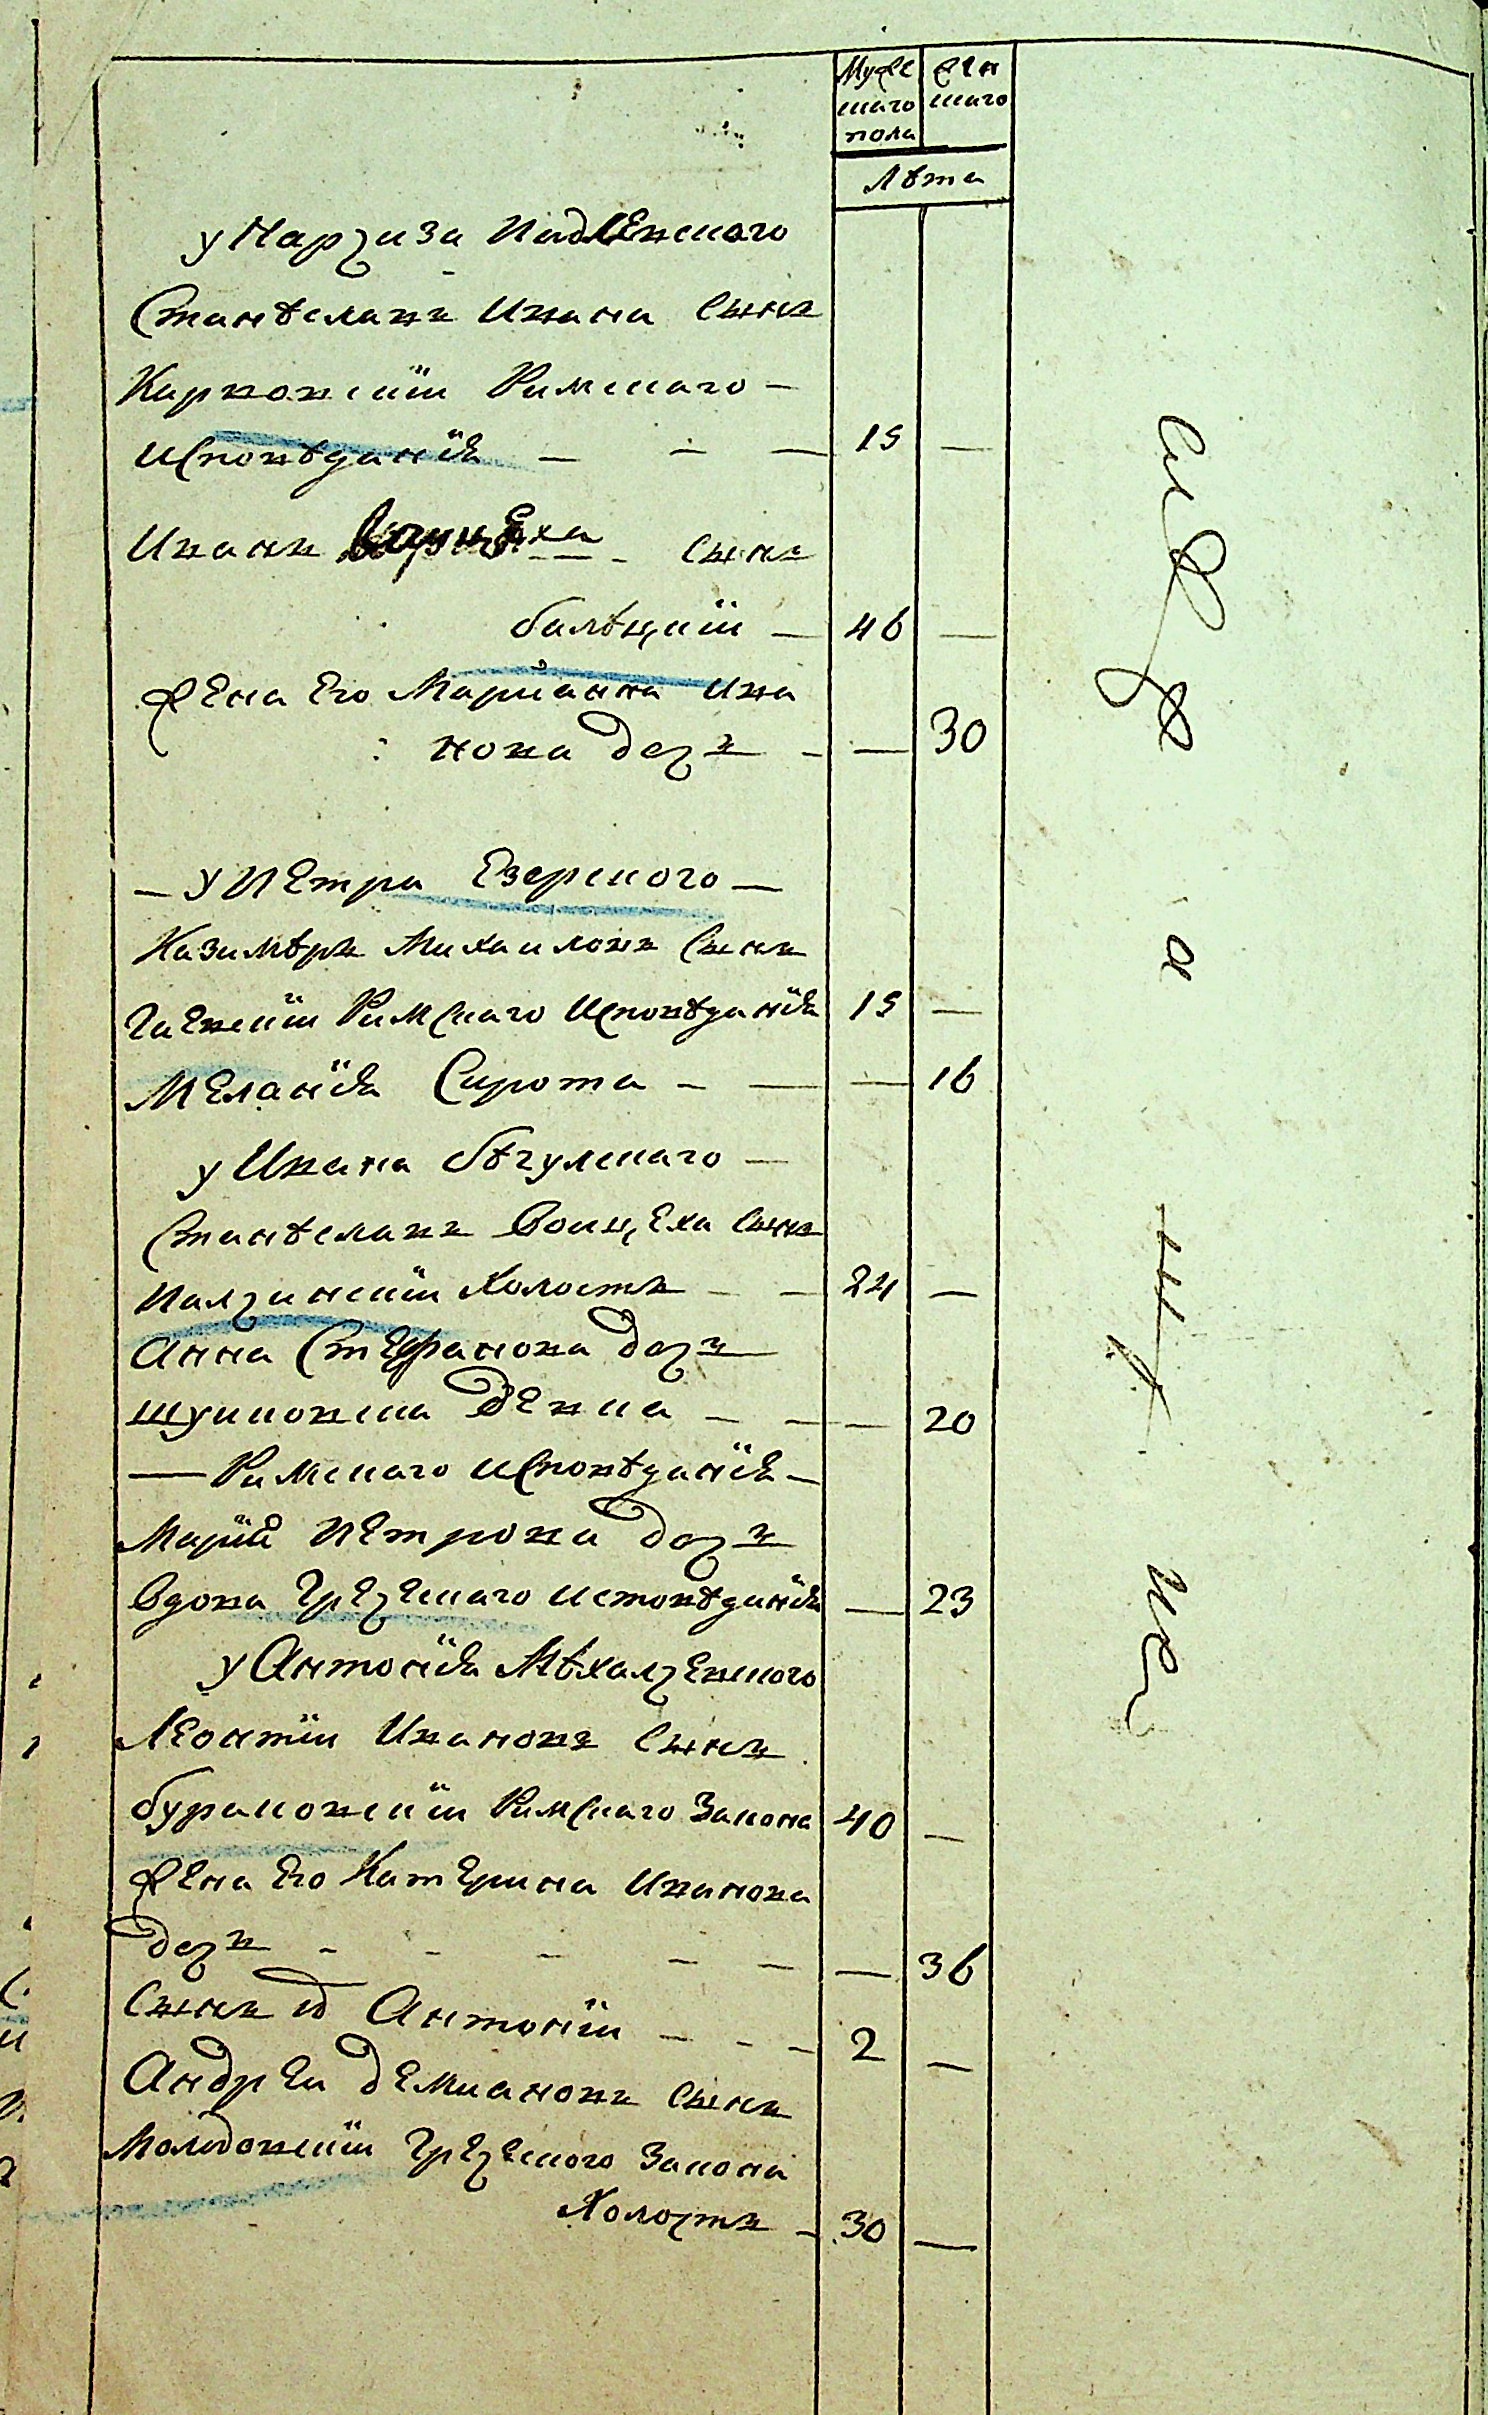 Мужескаго пола
Женскаго
Лѣта
у Нарциза Падлевскаго
Станѣславъ Ивана Сынъ
Карвовскій Римскаго —
Исповѣданія — — — 15 —
Иванъ Войцеха - - сынъ
балѣцкій — 46 —
Жена Его Маріанна Ива
нова дочъ - — 30
— у Петра Езерского —
Казимѣръ Михаиловъ Сынъ
Гаевскій Римскаго Исповѣданія 15 —
Меланія Сирота - — — 16
у Ивана бѣгулскаго —
Станѣславъ Воицеха Сынъ
Палчинскій Холостъ - — 24 —
Анна Стефанова дочъ
шушковска дѣвка - — — 20
— Римскаго Исповѣданія —
Марія Петрова дочъ
Вдова Греческаго исповѣданія — 23
у Антонія Мѣхалчевского
Леонтіи Ивановъ Сынъ
бураковскіи Римскаго Закона 40 —
Жена Его Катерина Иванова
дочъ - - - - — — 36
Сынъ Антоніи - - - 2 —
Андреи демиановъ Сынъ
Молодовскіи Греческого Закона
Холостъ - 30 —